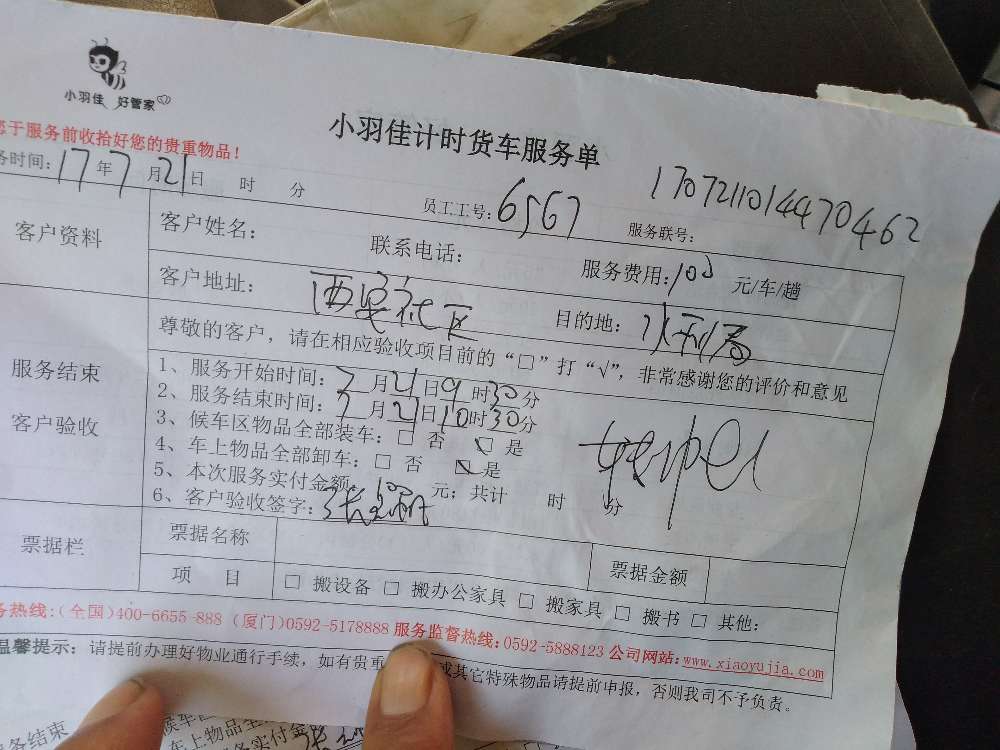 小羽佳 好管家
小羽佳计时货车服务单
于服务前收拾好您的贵重物品！
务时间：17年7月21日 时 分
员工工号：6567
服务联号：170721101447 0462
客户资料
客户姓名： 联系电话： 服务费用：100 元/车/趟
客户地址： 社区 目的地：水利局
服务结束
客户验收
尊敬的客户，请在相应验收项目前的“□”打“√”，非常感谢您的评价和意见
1、服务开始时间：7月21日9时30分
2、服务结束时间：7月21日10时30分
3、候车区物品全部装车：□ 否 □ 是
4、车上物品全部卸车：□ 否 □ 是
5、本次服务实付金额：100元；共计 时 分
6、客户验收签字：张
票据栏
票据名称 票据金额
项 目 □ 搬设备 □ 搬办公家具 □ 搬家具 □ 搬书 □ 其他：
务热线：（全国）400-6655-888（厦门）0592-5178888 服务监督热线：0592-5888123 公司网站：www.xiaoyujia.com
温馨提示：请提前办理好物业通行手续，如有贵重 或其它特殊物品请提前申报，否则我司不予负责。
务结束
候车
车上物品全
服务实付金